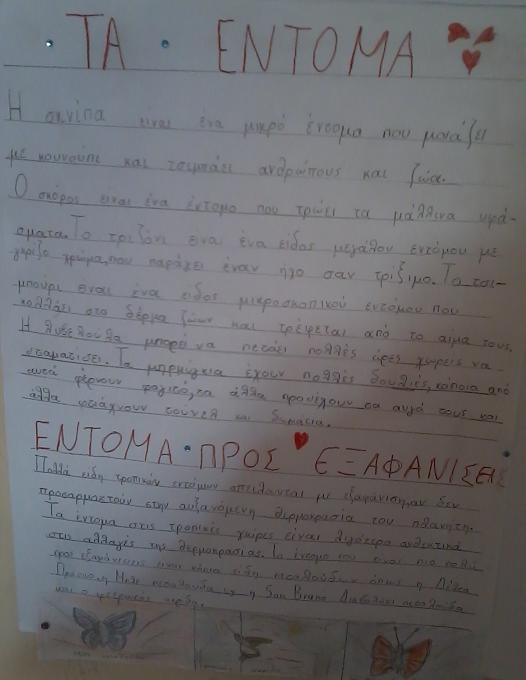 ΤΑ ΕΝΤΟΜΑ
Η σκνίπα είναι ένα μικρό έντομα που μοιάζει
με κουνούπι και τσιμπάει ανθρώπους και ζώα.
Ο σκόρος είναι ένα έντομο που τρώει τα μάλλινα υφά-
σματα. Το τριζόνι ειναι ένα είδος μεγάλου εντόμου με
γκρίζο χρώμα, που παράγει έναν ήχο σαν τρίξιμο. Το τσι-
μπούρι ειναι ένα είδος μικροσκοπικού εντόμου που
κολλάει στο δέρμα ζώων και τρέφεται από το αιμα τους.
Η λιβελούλα μπορεί να πετάει πολλές ώρες χωρείς να
σταματίσει. Τα μπρμύγκια έχουν πολλές δουλιές, κάποια από
αυτά φέρνουν φαγιτό, τα άλλα προσέχουν τα αυγά τους και
άλλα φτιάχνουν τουνελ και δωμάτια.
ΕΝΤΟΜΑ ΠΡΟΣ ΕΞΑΦΑΝΙΣΕΙΣ
Πολλά είδη τροπικών εντόμων απειλουνται με εξαφάνιση, αν δεν
προσαρμοστούν στην αυξανόμενη θερμοκρασία του πλανητη.
Τα έντομα στις τροπικές χώρες είναι λιγότερο ανθεκτικά
στις αλλαγές της θερμοκρασίας. Τα έντομα που ειναι πιο πολύ
προς εξαφάνισεις ειναι κάποια είδη πεταλούδων όπως η
Πράσινη Μπλε πεταλουδα και η San Bruno πεταλούδα
και ο